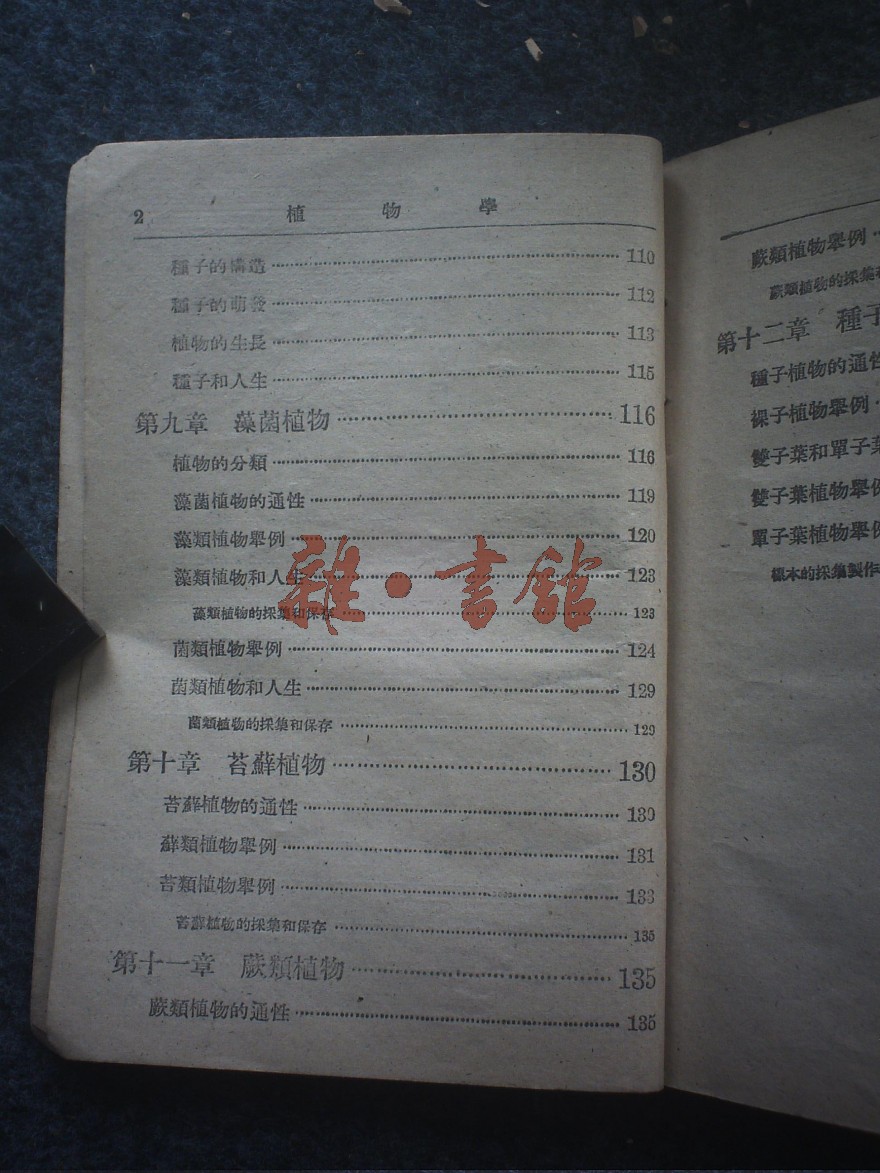 2 植物學
種子的構造 110
種子的萌發 112
植物的生長 113
種子和人生 115
第九章 藻菌植物 116
植物的分類 116
藻菌植物的通性 119
藻類植物舉例 120
藻類植物和人生 123
藻類植物的採集和保存 123
菌類植物舉例 124
菌類植物和人生 129
菌類植物的採集和保存 129
第十章 苔蘚植物 130
苔蘚植物的通性 130
蘚類植物舉例 131
苔類植物舉例 133
苔蘚植物的採集和保存 135
第十一章 蕨類植物 135
蕨類植物的通性 135
雜·書館
蕨類植物舉例
蕨類植物的採集
第十二章 種子
種子植物的通性
裸子植物舉例
雙子葉和單子葉
雙子葉植物舉例
單子葉植物舉例
標本的採集製作